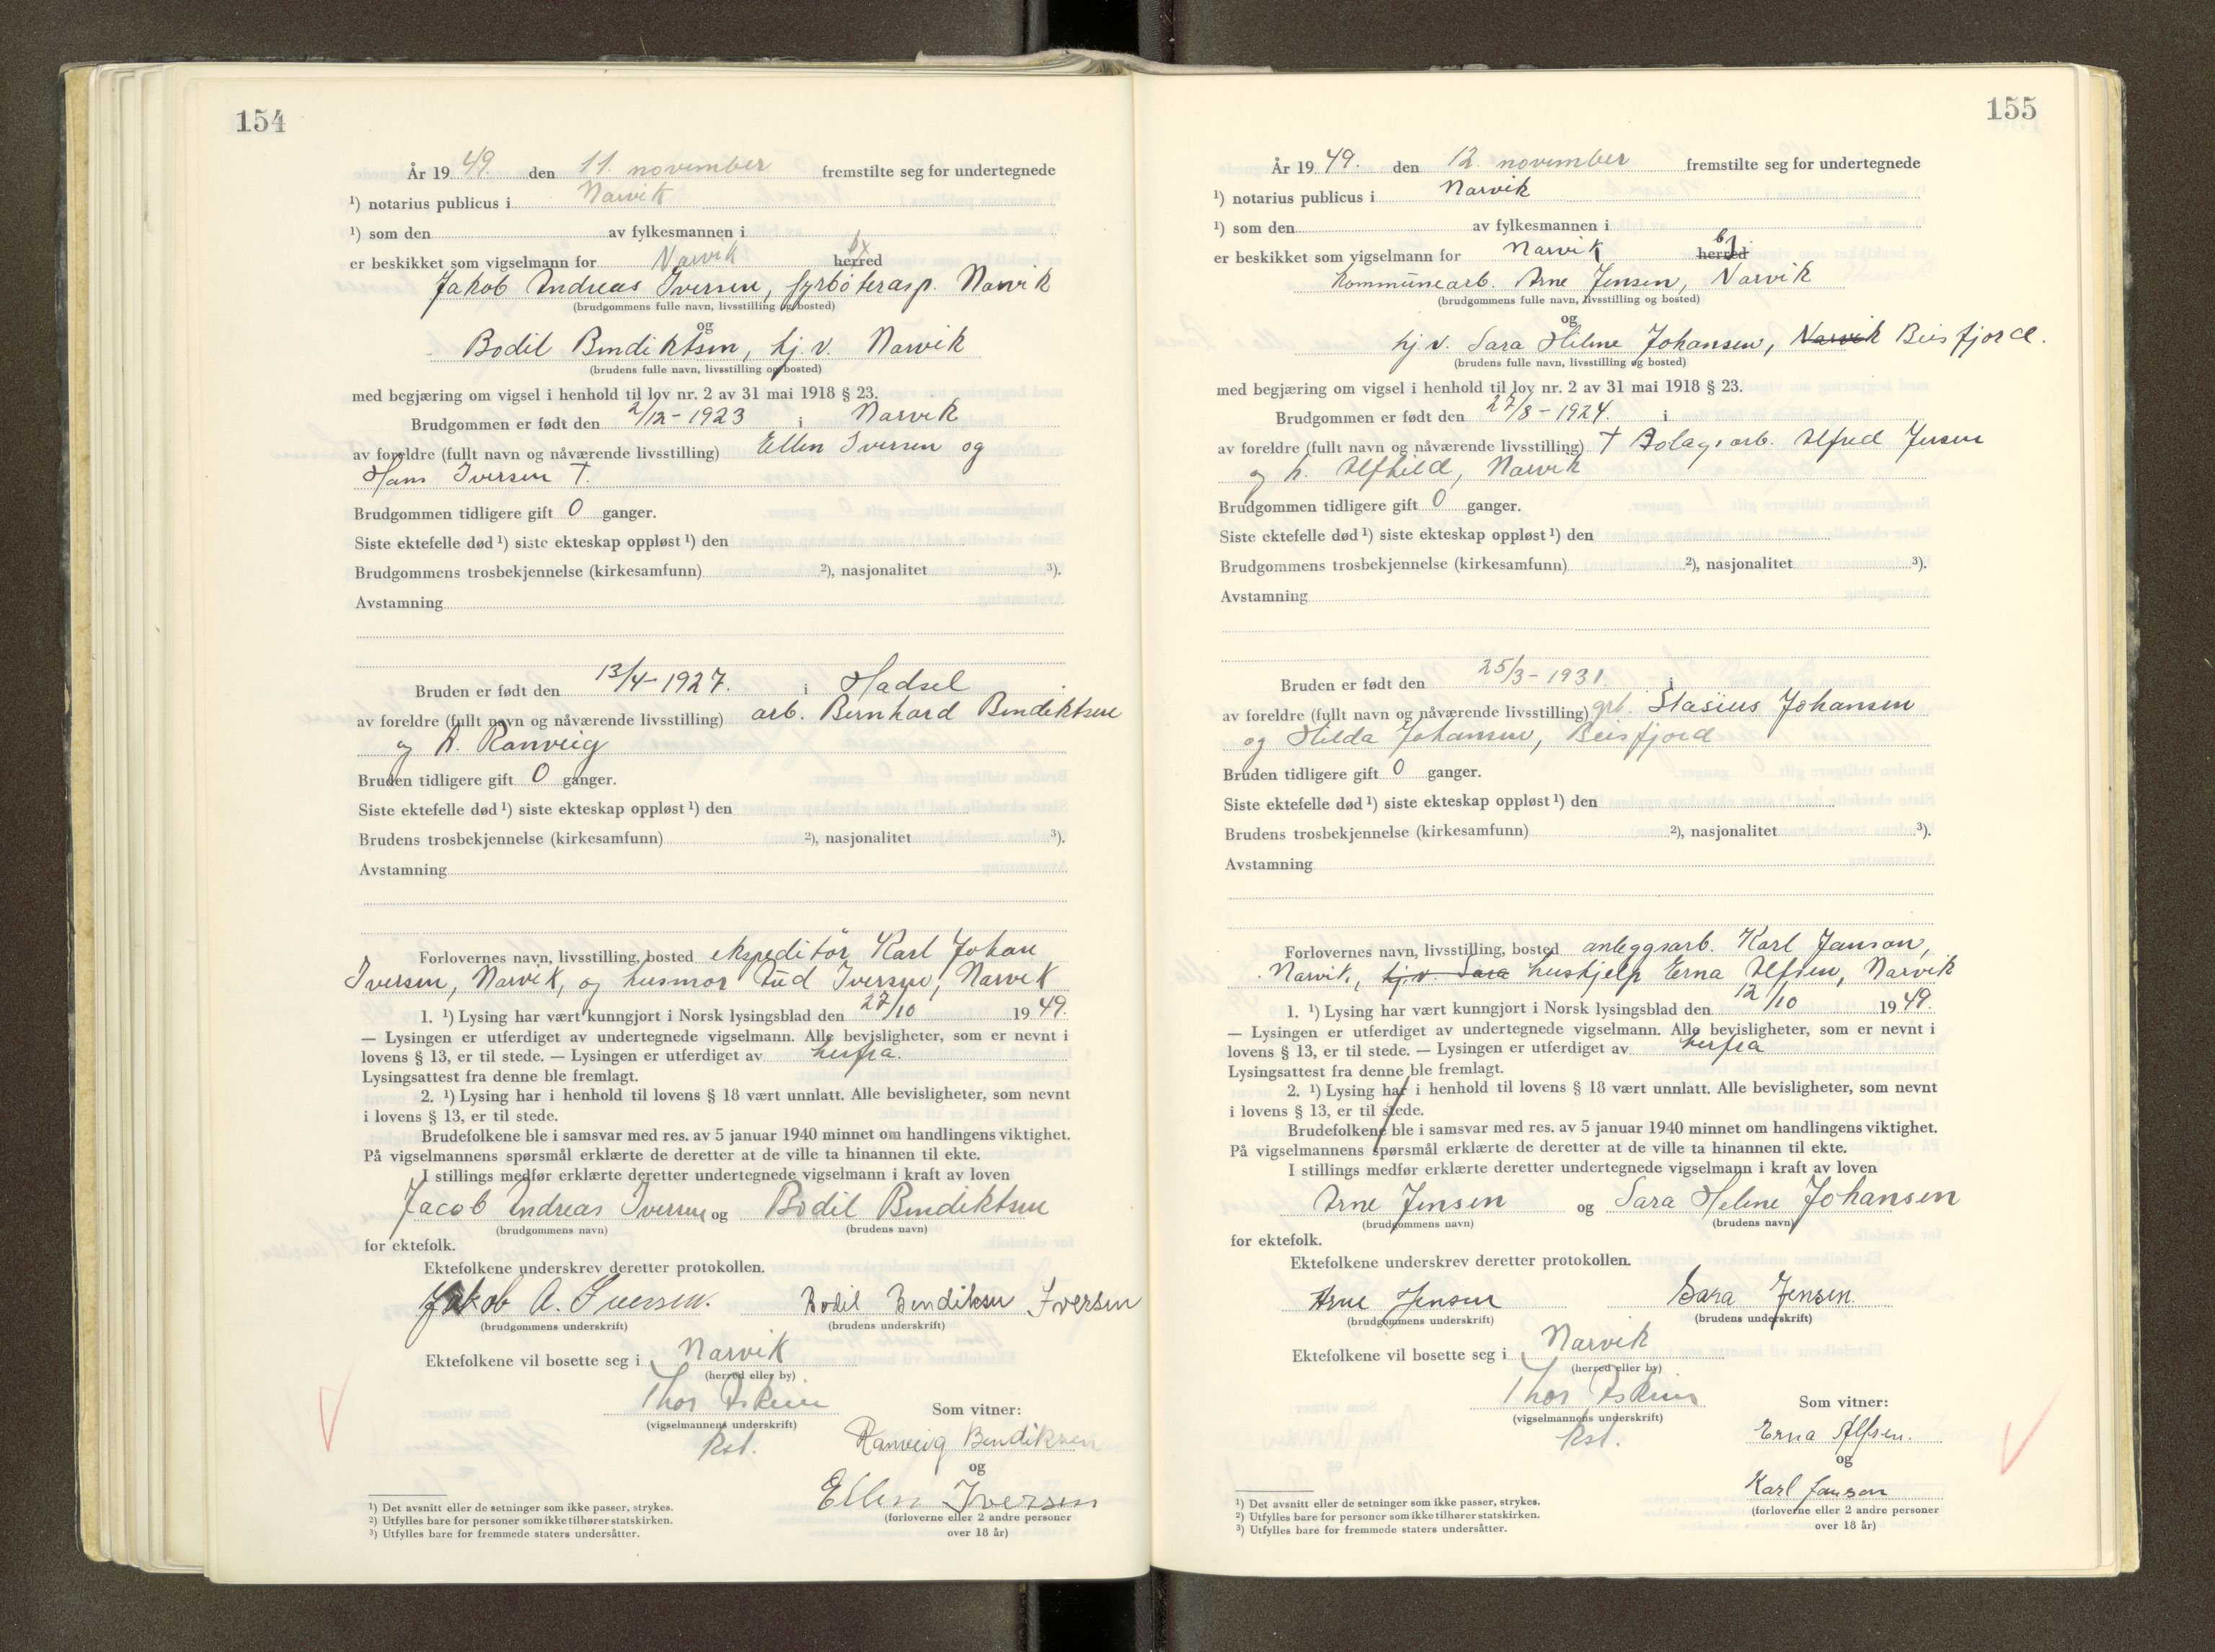 154
År 19 49. den 11. november fremstilte seg for undertegnede
¹) notarius publicus i Narvik
¹) som den av fylkesmannen i
er beskikket som vigselmann for Narvik herred by
Jakob Andreas Iversen, fyrbøterasp. Narvik
(brudgommens fulle navn, livsstilling og bosted)
og
Bodil Bendiktsen, hj. v. Narvik
(brudens fulle navn, livsstilling og bosted)
med begjæring om vigsel i henhold til lov nr. 2 av 31 mai 1918 § 23.
Brudgommen er født den 2/12 - 1923 i Narvik
av foreldre (fullt navn og nåværende livsstilling) Ellen Iversen og
Hans Iversen †.
Brudgommen tidligere gift 0 ganger.
Siste ektefelle død ¹) siste ekteskap oppløst ¹) den
Brudgommens trosbekjennelse (kirkesamfunn) ²), nasjonalitet ³).
Avstamning
Bruden er født den 13/4 - 1927. i Hadsel
av foreldre (fullt navn og nåværende livsstilling) arb. Bernhard Bendiktsen
og h. Ranveig
Bruden tidligere gift 0 ganger.
Siste ektefelle død ¹) siste ekteskap oppløst ¹) den
Brudens trosbekjennelse (kirkesamfunn) ²), nasjonalitet ³).
Avstamning
Forlovernes navn, livsstilling, bosted ekspeditör Karl Johan
Iversen, Narvik, og husmor Iversen, Narvik
1. ¹) Lysing har vært kunngjort i Norsk lysingsblad den 27/10 19 49.
— Lysingen er utferdiget av undertegnede vigselmann. Alle bevisligheter, som er nevnt i
lovens § 13, er til stede. — Lysingen er utferdiget av herfra.
Lysingsattest fra denne ble fremlagt.
2. ¹) Lysing har i henhold til lovens § 18 vært unnlatt. Alle bevisligheter, som nevnt
i lovens § 13, er til stede.
Brudefolkene ble i samsvar med res. av 5 januar 1940 minnet om handlingens viktighet.
På vigselmannens spørsmål erklærte de deretter at de ville ta hinannen til ekte.
I stillings medfør erklærte deretter undertegnede vigselmann i kraft av loven
Jacob Andreas Iversen og Bodil Bendiktsen
(brudgommens navn) (brudens navn)
for ektefolk.
Ektefolkene underskrev deretter protokollen.
Jakob A. Iversen. Bodil Bendiksen Iversen
(brudgommens underskrift) (brudens underskrift)
Ektefolkene vil bosette seg i Narvik
(herred eller by)
Thor
(vigselmannens underskrift)
Som vitner:
Ranveig Bendiksen
og
Ellen Iversen
(forloverne eller 2 andre personer
over 18 år)
¹) Det avsnitt eller de setninger som ikke passer, strykes.
²) Utfylles bare for personer som ikke tilhører statskirken.
³) Utfylles bare for fremmede staters undersåtter.
155
År 19 49. den 12. november fremstilte seg for undertegnede
¹) notarius publicus i Narvik
¹) som den av fylkesmannen i
er beskikket som vigselmann for Narvik herred by
Kommunearb. Arne Jensen, Narvik
(brudgommens fulle navn, livsstilling og bosted)
og
hj. v. Sara Helene Johansen, Narvik Beisfjord.
(brudens fulle navn, livsstilling og bosted)
med begjæring om vigsel i henhold til lov nr. 2 av 31 mai 1918 § 23.
Brudgommen er født den 27/8 - 1924. i
av foreldre (fullt navn og nåværende livsstilling) † Bolagsarb. Alfred Jensen
og h. Alfhild, Narvik
Brudgommen tidligere gift 0 ganger.
Siste ektefelle død ¹) siste ekteskap oppløst ¹) den
Brudgommens trosbekjennelse (kirkesamfunn) ²), nasjonalitet ³).
Avstamning
Bruden er født den 25/3 - 1931. i
av foreldre (fullt navn og nåværende livsstilling) grb. Stasius Johansen
og Hilda Johansen, Beisfjord
Bruden tidligere gift 0 ganger.
Siste ektefelle død ¹) siste ekteskap oppløst ¹) den
Brudens trosbekjennelse (kirkesamfunn) ²), nasjonalitet ³).
Avstamning
Forlovernes navn, livsstilling, bosted anleggsarb. Karl Janson,
Narvik, hj. v. Sara hushjelp Erna Alfsen, Narvik
1. ¹) Lysing har vært kunngjort i Norsk lysingsblad den 12/10 19 49.
— Lysingen er utferdiget av undertegnede vigselmann. Alle bevisligheter, som er nevnt i
lovens § 13, er til stede. — Lysingen er utferdiget av herfra
Lysingsattest fra denne ble fremlagt.
2. ¹) Lysing har i henhold til lovens § 18 vært unnlatt. Alle bevisligheter, som nevnt
i lovens § 13, er til stede.
Brudefolkene ble i samsvar med res. av 5 januar 1940 minnet om handlingens viktighet.
På vigselmannens spørsmål erklærte de deretter at de ville ta hinannen til ekte.
I stillings medfør erklærte deretter undertegnede vigselmann i kraft av loven
Arne Jensen og Sara Helene Johansen
(brudgommens navn) (brudens navn)
for ektefolk.
Ektefolkene underskrev deretter protokollen.
Arne Jensen Sara Jensen.
(brudgommens underskrift) (brudens underskrift)
Ektefolkene vil bosette seg i Narvik
(herred eller by)
Thor
(vigselmannens underskrift)
Som vitner:
Erna Alfsen.
og
Karl Janson
(forloverne eller 2 andre personer
over 18 år)
¹) Det avsnitt eller de setninger som ikke passer, strykes.
²) Utfylles bare for personer som ikke tilhører statskirken.
³) Utfylles bare for fremmede staters undersåtter.